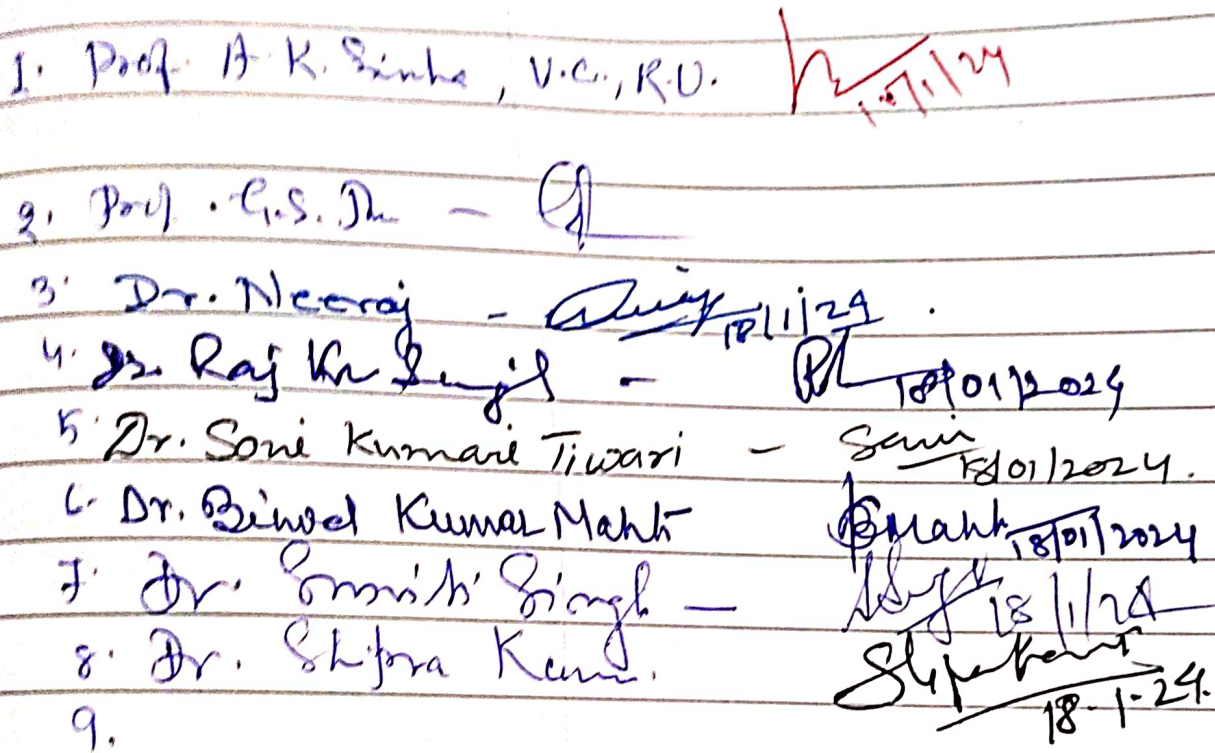 1. Prof. A. K. Sinha, V.C., R.U. 18/1/24
2. Prof. G.S. -
3. Dr. Neeraj - 18/1/24.
4. Dr. Raj Kr Singh - 18/01/2024
5. Dr. Soni Kumari Tiwari - Soni 18/01/2024.
6. Dr. Binod Kumar Mahto 18/01/2024
7. Dr. Smriti Singh - 18/1/24
8. Dr. Shipra Kumari. 18-1-24.
9.